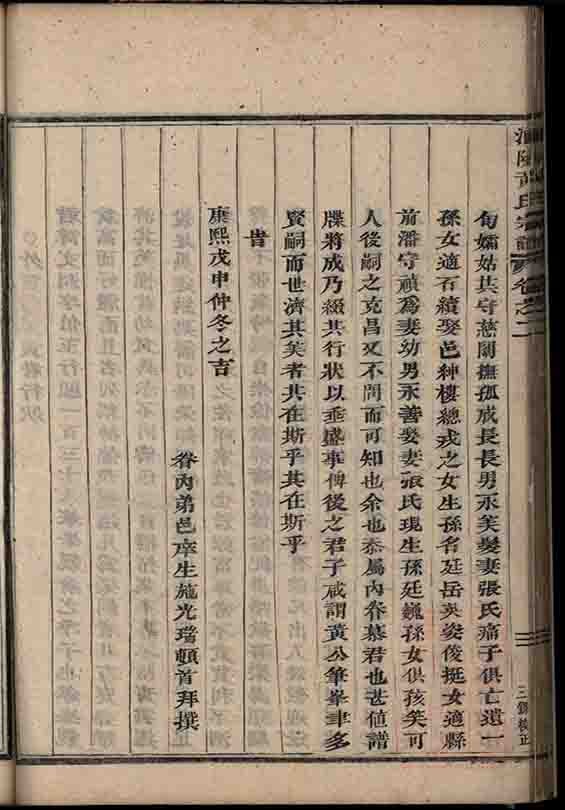 黃氏宗譜 卷之二
旬孀姑共守慈闈撫孤成長長男永笑髮妻張氏痛子俱亡遺一
孫女適石續娶邑紳樓總戎之女生孫名廷岳英姿俊挺女適縣
前潘守禎為妻幼男永善娶妻張氏現生孫廷巍孫女俱孩笑可
人後嗣之克昌又不問而可知也余也忝屬內眷慕君也甚值譜
牒將成乃綴其行狀以垂盛事俾後之君子咸謂黃公肇峯聿多
賢嗣而世濟其美者其在斯乎其在斯乎
旹
康熙戊申仲冬之吉
眷內弟邑庠生施光瑞頓首拜撰
三錫校正